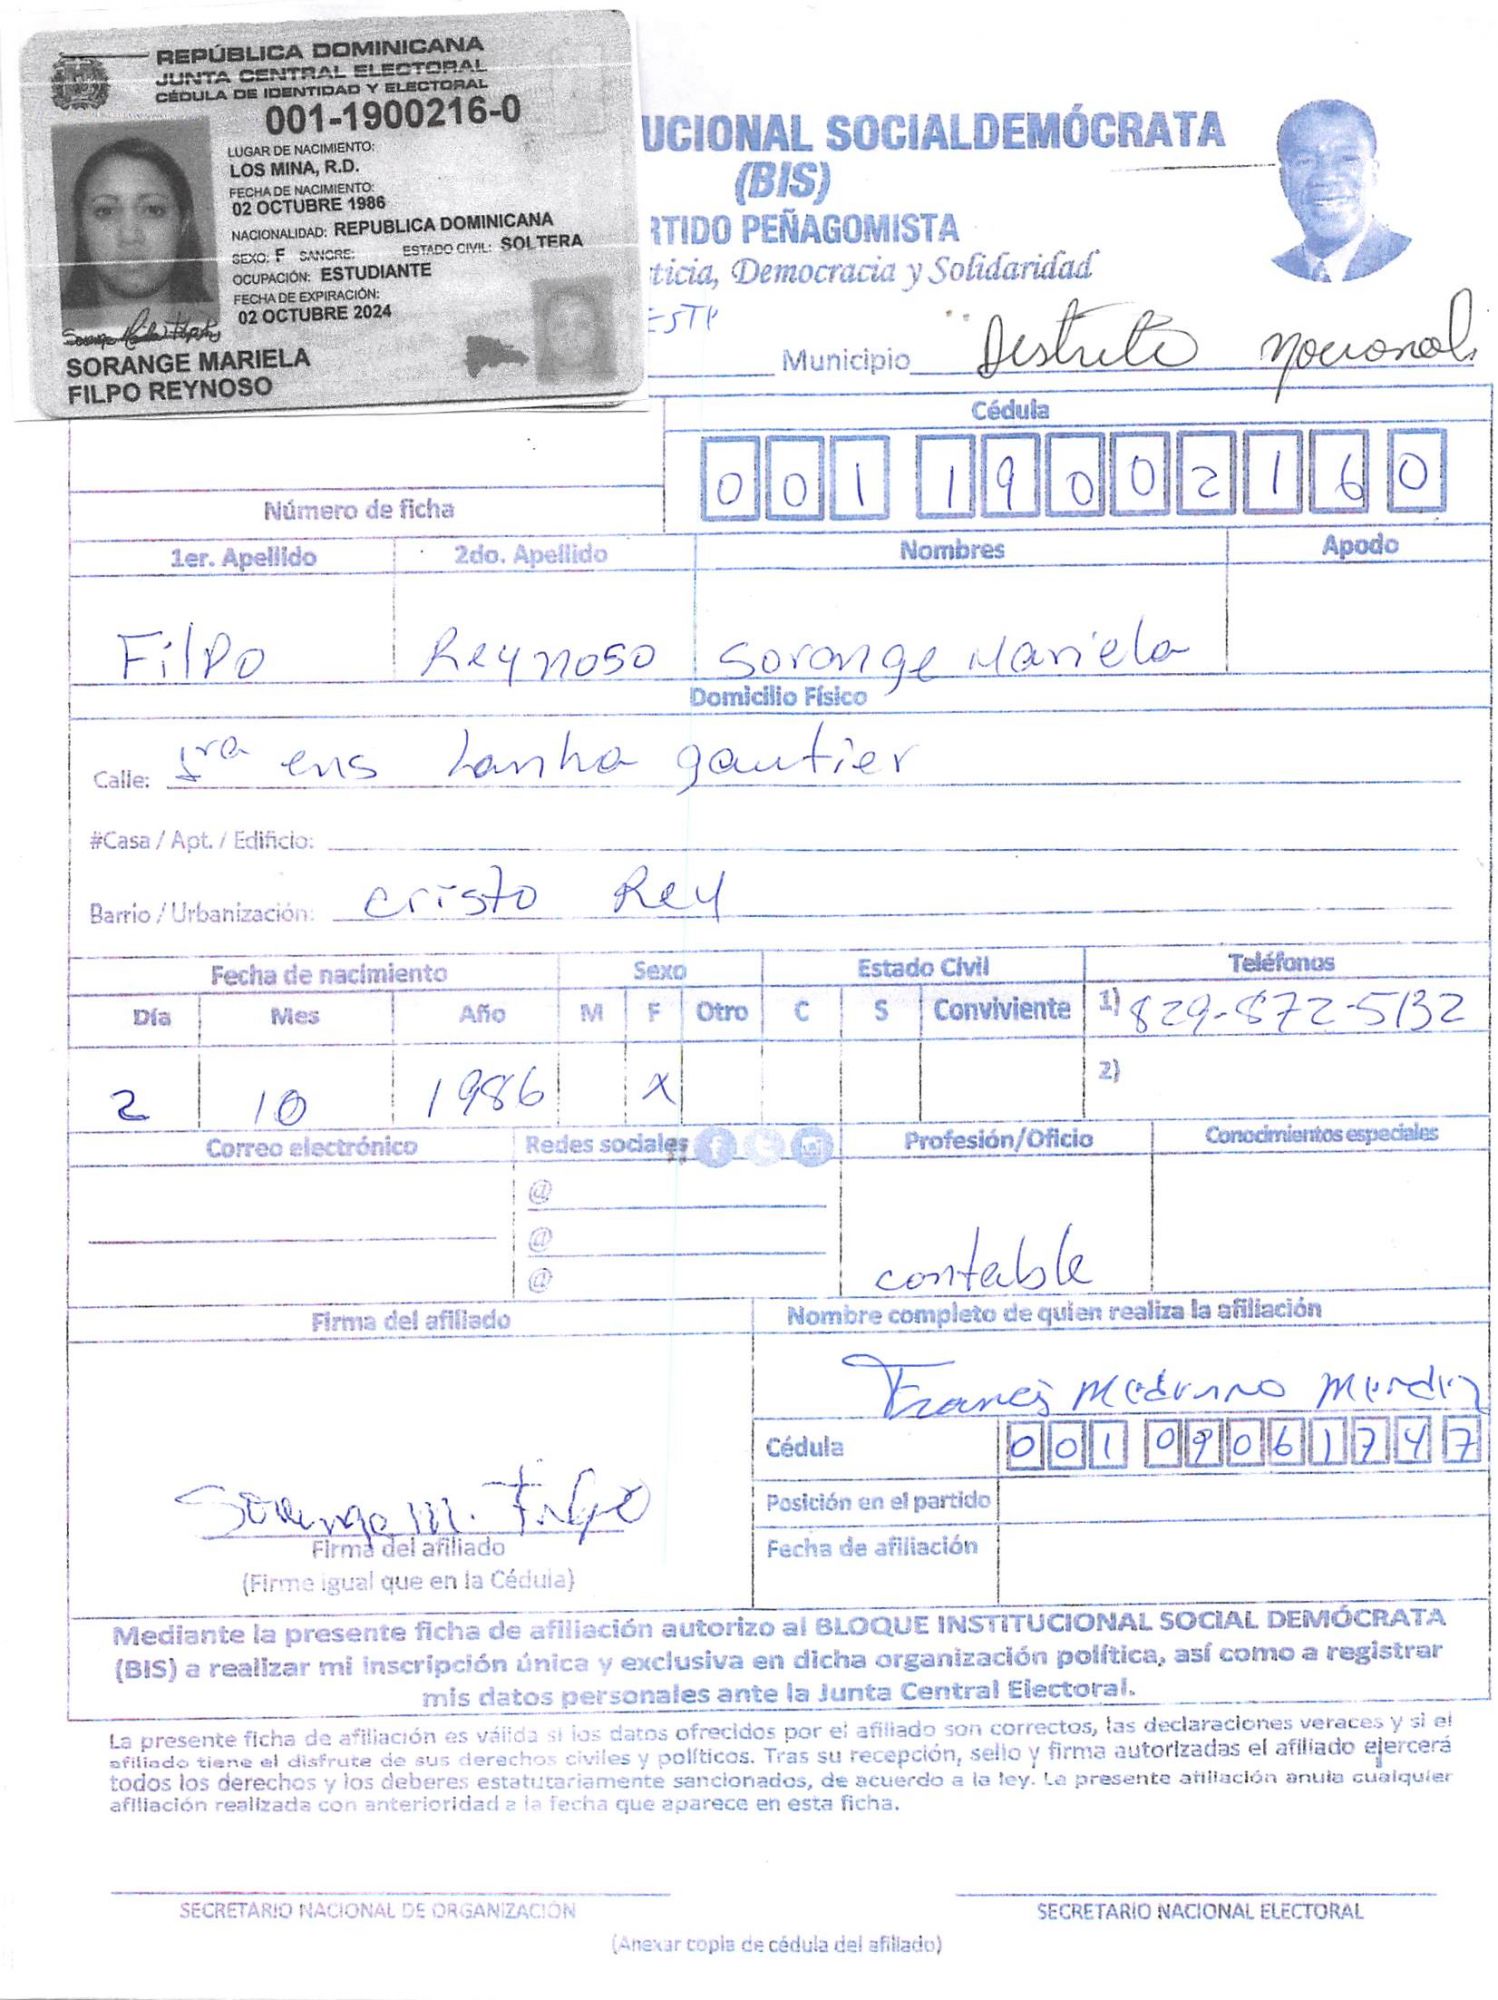 REPÚBLICA DOMINICANA
JUNTA CENTRAL ELECTORAL
CÉDULA DE IDENTIDAD Y ELECTORAL
001-1900216-0
LUGAR DE NACIMIENTO:
LOS MINA, R.D.
FECHA DE NACIMIENTO:
02 OCTUBRE 1986
NACIONALIDAD: REPUBLICA DOMINICANA
SEXO: F SANGRE: ESTADO CIVIL: SOLTERA
OCUPACIÓN: ESTUDIANTE
FECHA DE EXPIRACIÓN:
02 OCTUBRE 2024
SORANGE MARIELA
FILPO REYNOSO
UCIONAL SOCIALDEMÓCRATA
(BIS)
RTIDO PEÑAGOMISTA
ticia, Democracia y Solidaridad
Municipio Distrito nacional
Cédula
001 1900216 0
Número de ficha
1er. Apellido 2do. Apellido Nombres Apodo
Filpo Reynoso Sorange Mariela
Domicilio Físico
Calle: 1ra ens gautier
#Casa / Apt. / Edificio:
Barrio / Urbanización: cristo Rey
Fecha de nacimiento Sexo Estado Civil Teléfonos
Día Mes Año M F Otro C S Conviviente 1) 829-872-5132
2 10 1986 x 2)
Correo electrónico Redes sociales Profesión/Oficio Conocimientos especiales
@
@
@
contable
Firma del afiliado Nombre completo de quien realiza la afiliación
Francis Medrano Mendez
Cédula 001 0906174 7
Posición en el partido
Sorange M. Filpo
Firma del afiliado
Fecha de afiliación
(Firme igual que en la Cédula)
Mediante la presente ficha de afiliación autorizo al BLOQUE INSTITUCIONAL SOCIAL DEMÓCRATA
(BIS) a realizar mi inscripción única y exclusiva en dicha organización política, así como a registrar
mis datos personales ante la Junta Central Electoral.
La presente ficha de afiliación es válida si los datos ofrecidos por el afiliado son correctos, las declaraciones veraces y si el
afiliado tiene el disfrute de sus derechos civiles y políticos. Tras su recepción, sello y firma autorizadas el afiliado ejercerá
todos los derechos y los deberes estatutariamente sancionados, de acuerdo a la ley. La presente afiliación anula cualquier
afiliación realizada con anterioridad a la fecha que aparece en esta ficha.
SECRETARIO NACIONAL DE ORGANIZACIÓN SECRETARIO NACIONAL ELECTORAL
(Anexar copia de cédula del afiliado)